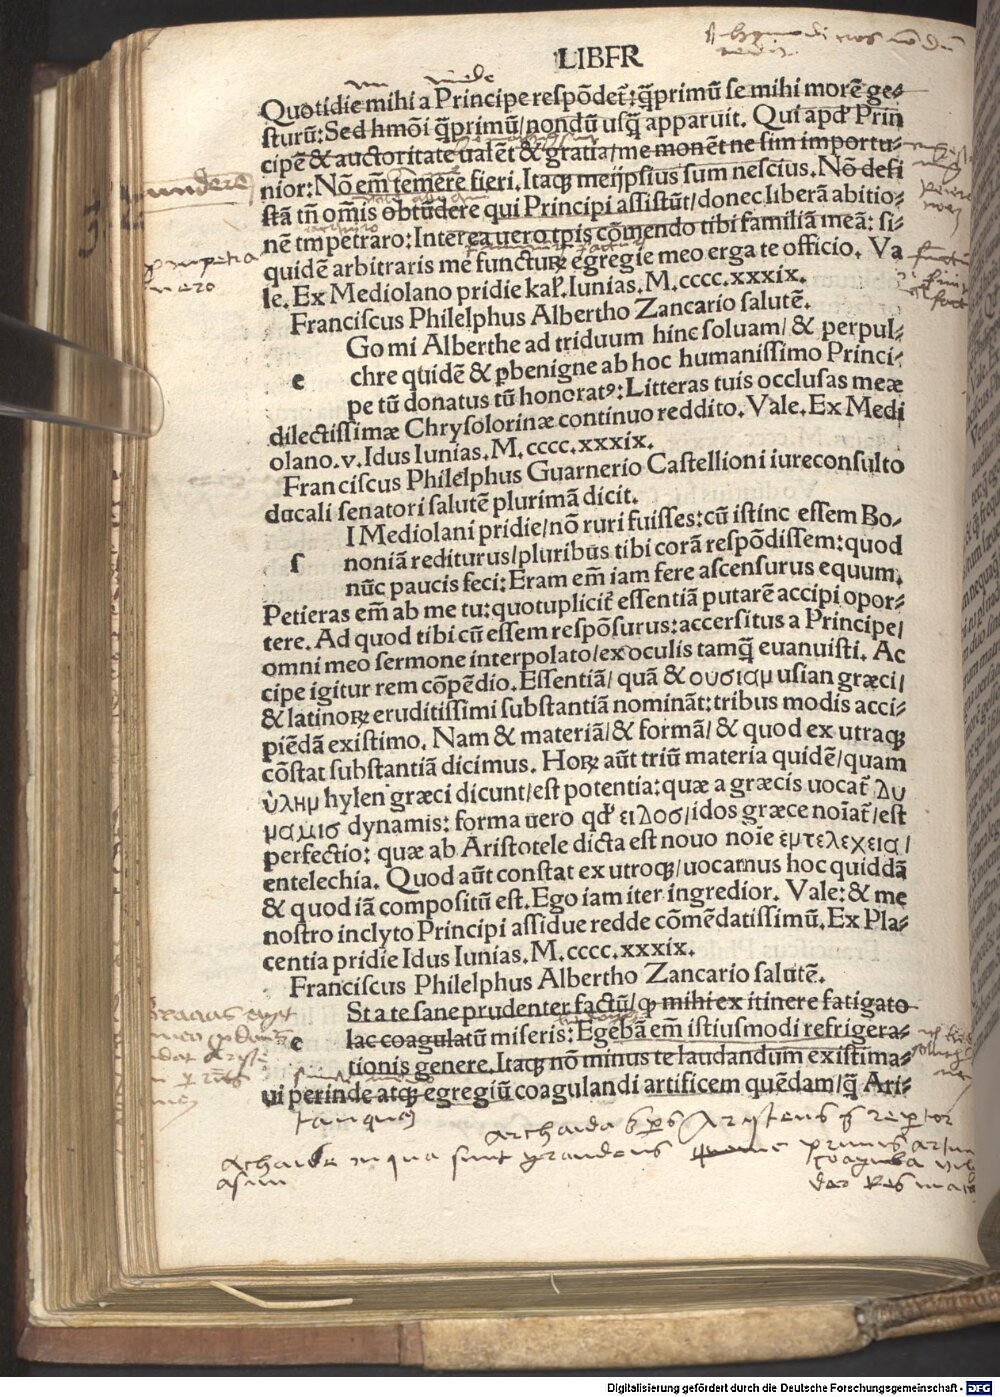 LIBER
Quotidie mihi a Principe respõdet̃: q̃primũ se mihi morẽ ge⸗
sturũ: Sed hmõi q̃primũ/nondũ usq̃ apparuit. Qui apd' Prin
cipẽ & auctoritate ualẽt & gratia/me monẽt ne sim importu⸗
nior: Nõ em̃ temere fieri. Itaqꝫ meijpsius sum nescius. Nõ desi
stã tñ om̃is obtũdere qui Principi assistũt/donec liberã abitio⸗
nẽ impetraro: Interea uero tpis cõmendo tibi familiã meã: si⸗
quidẽ arbitraris me functuꝝ egregie meo erga te officio. Va
le. Ex Mediolano pridie kal'. Iunias. M.cccc.xxxix.
Franciscus Philelphus Albertho Zancario salutẽ.
Go mi Alberthe ad triduum hinc soluam/ & perpul⸗
e chre quidẽ & pbenigne ab hoc humanissimo Princi⸗
pe tũ donatus tũ honoratꝰ: Litteras tuis occlusas meæ
dilectissimæ Chrysolorinæ continuo reddito. Vale. Ex Medi
olano. v. Idus Iunias. M. cccc.xxxix.
Franciscus Philelphus Guarnerio Castellioni iureconsulto
ducali senatori salutẽ plurimã dicit.
I Mediolani pridie/nõ ruri fuisses: cũ istinc essem Bo⸗
s noniã rediturus/pluribus tibi corã respõdissem: quod
nũc paucis feci: Eram em̃ iam fere ascensurus equum.
Petieras em̃ ab me tu: quotuplicit̃ essentiã putarẽ accipi opor⸗
tere. Ad quod tibi cũ essem respõsurus: accersitus a Principe/
omni meo sermone interpolato/ex oculis tamq̃ euanuisti. Ac
cipe igitur rem cõpẽdio. Essentiã/ quã & ουσιαμ usian græci/
& latinoꝝ eruditissimi substantiã nominãt: tribus modis acci⸗
piẽdã existimo. Nam & materiã/& formã/ & quod ex utraqꝫ
cõstat substantiã dicimus. Hoꝝ aũt triũ materia quidẽ/quam
ὑλημ hylen græci dicunt/est potentia: quæ a græcis uocat̃ δυ
μαμισ dynamis: forma uero qd' ειδοσ/idos græce noĩat̃/est
perfectio: quæ ab Aristotele dicta est nouo noĩe εμτελεχεια/
entelechia. Quod aũt constat ex utroqꝫ/uocamus hoc quiddã
& quod iã compositũ est. Ego iam iter ingredior. Vale: & me
nostro inclyto Principi assidue redde cõmẽdatissimũ. Ex Pla⸗
centia pridie Idus Iunias. M.cccc.xxxix.
Franciscus Philelphus Albertho Zancario salutẽ.
St a te sane prudenter factũ/ꝙ mihi ex itinere fatigato
e lac coagulatũ miseris: Egebã em̃ istiusmodi refrigera⸗
tionis genere. Itaqꝫ nõ minus te laudandum existima⸗
ui perinde atqꝫ egregiũ coagulandi artificem quẽdam/q̃ Ari⸗
Digitalisierung gefördert durch die Deutsche Forschungsgemeinschaft - DFG